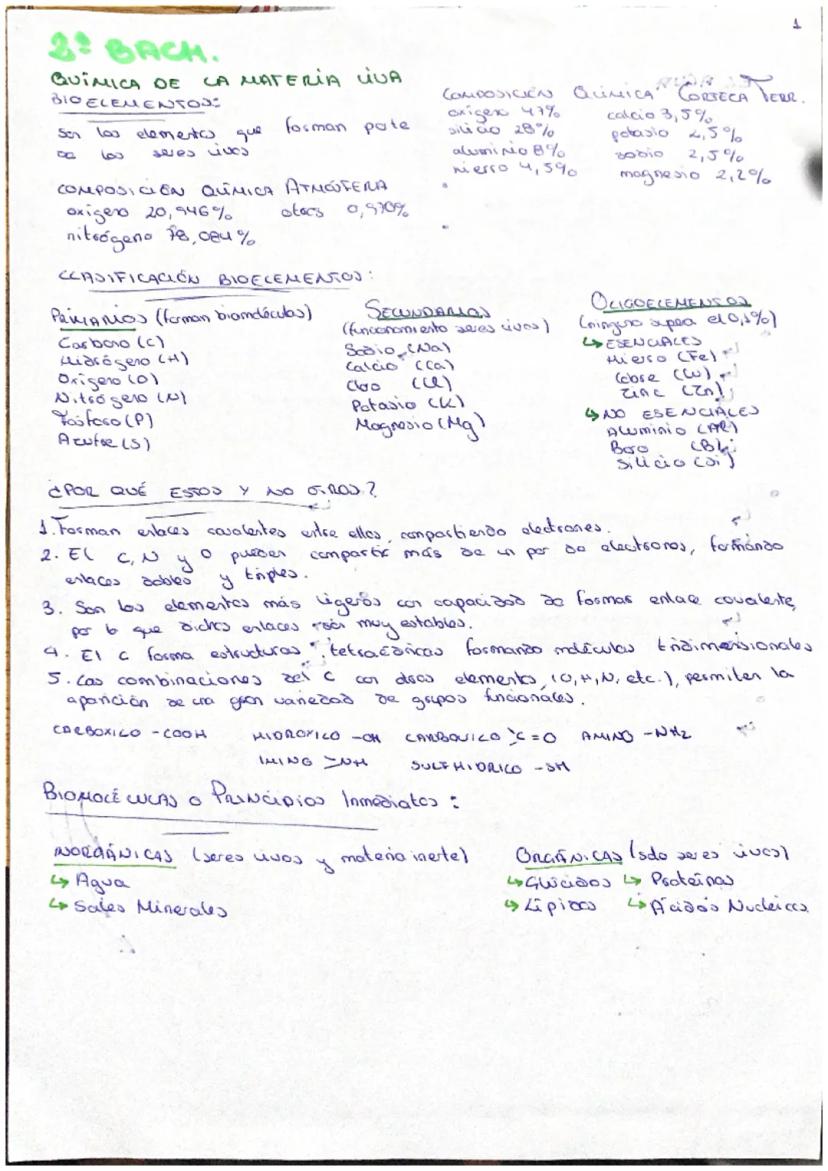 1
2º BACH.
QUÍMICA DE LA MATERIA VIVA
BIOELEMENTOS:
Son los elementos que forman parte
de los seres vivos
COMPOSICIÓN QUÍMICA CORTECA TERR.
oxígeno 47% calcio 3,5%
silicio 28% potasio 2,5%
aluminio 8% sodio 2,5%
hierro 4,5% magnesio 2,2%
COMPOSICIÓN QUÍMICA ATMÓSFERA
oxígeno 20,946% otros 0,970%
nitrógeno 78,084%
CLASIFICACIÓN BIOELEMENTOS:
PRIMARIOS (forman biomoléculas)
Carbono (C)
Hidrógeno (H)
Oxígeno (O)
Nitrógeno (N)
Fósforo (P)
Azufre (S)
SECUNDARIOS
(funcionamiento seres vivos)
Sodio (Na)
Calcio (Ca)
Cloro (Cl)
Potasio (K)
Magnesio (Mg)
OLIGOELEMENTOS
(ninguno supera el 0,1%)
↳ ESENCIALES
Hierro (Fe)
Cobre (Cu)
Zinc (Zn)
↳ NO ESENCIALES
Aluminio (Al)
Boro (B)
Silicio (Si)
¿POR QUÉ ESTOS Y NO OTROS?
1. Forman enlaces covalentes entre ellos, compartiendo electrones.
2. El C, N y O pueden compartir más de un par de electrones, formando
enlaces dobles y triples.
3. Son los elementos más ligeros con capacidad de formar enlace covalente,
por lo que dichos enlaces son muy estables.
4. El C forma estructuras tetraédricas formando moléculas tridimensionales
5. Las combinaciones del C con otros elementos, (O, H, N, etc.), permiten la
aparición de una gran variedad de grupos funcionales.
CARBOXILO -COOH HIDROXILO -OH CARBONILO >C=O AMINO -NH2
IMINO >NH SULFHIDRILO -SH
BIOMOLÉCULAS O PRINCIPIOS Inmediatos:
INORGÁNICAS (seres vivos y materia inerte)
↳ Agua
↳ Sales Minerales
ORGÁNICAS (sólo seres vivos)
↳ Glúcidos ↳ Proteínas
↳ Lípidos ↳ Ácidos Nucleicos